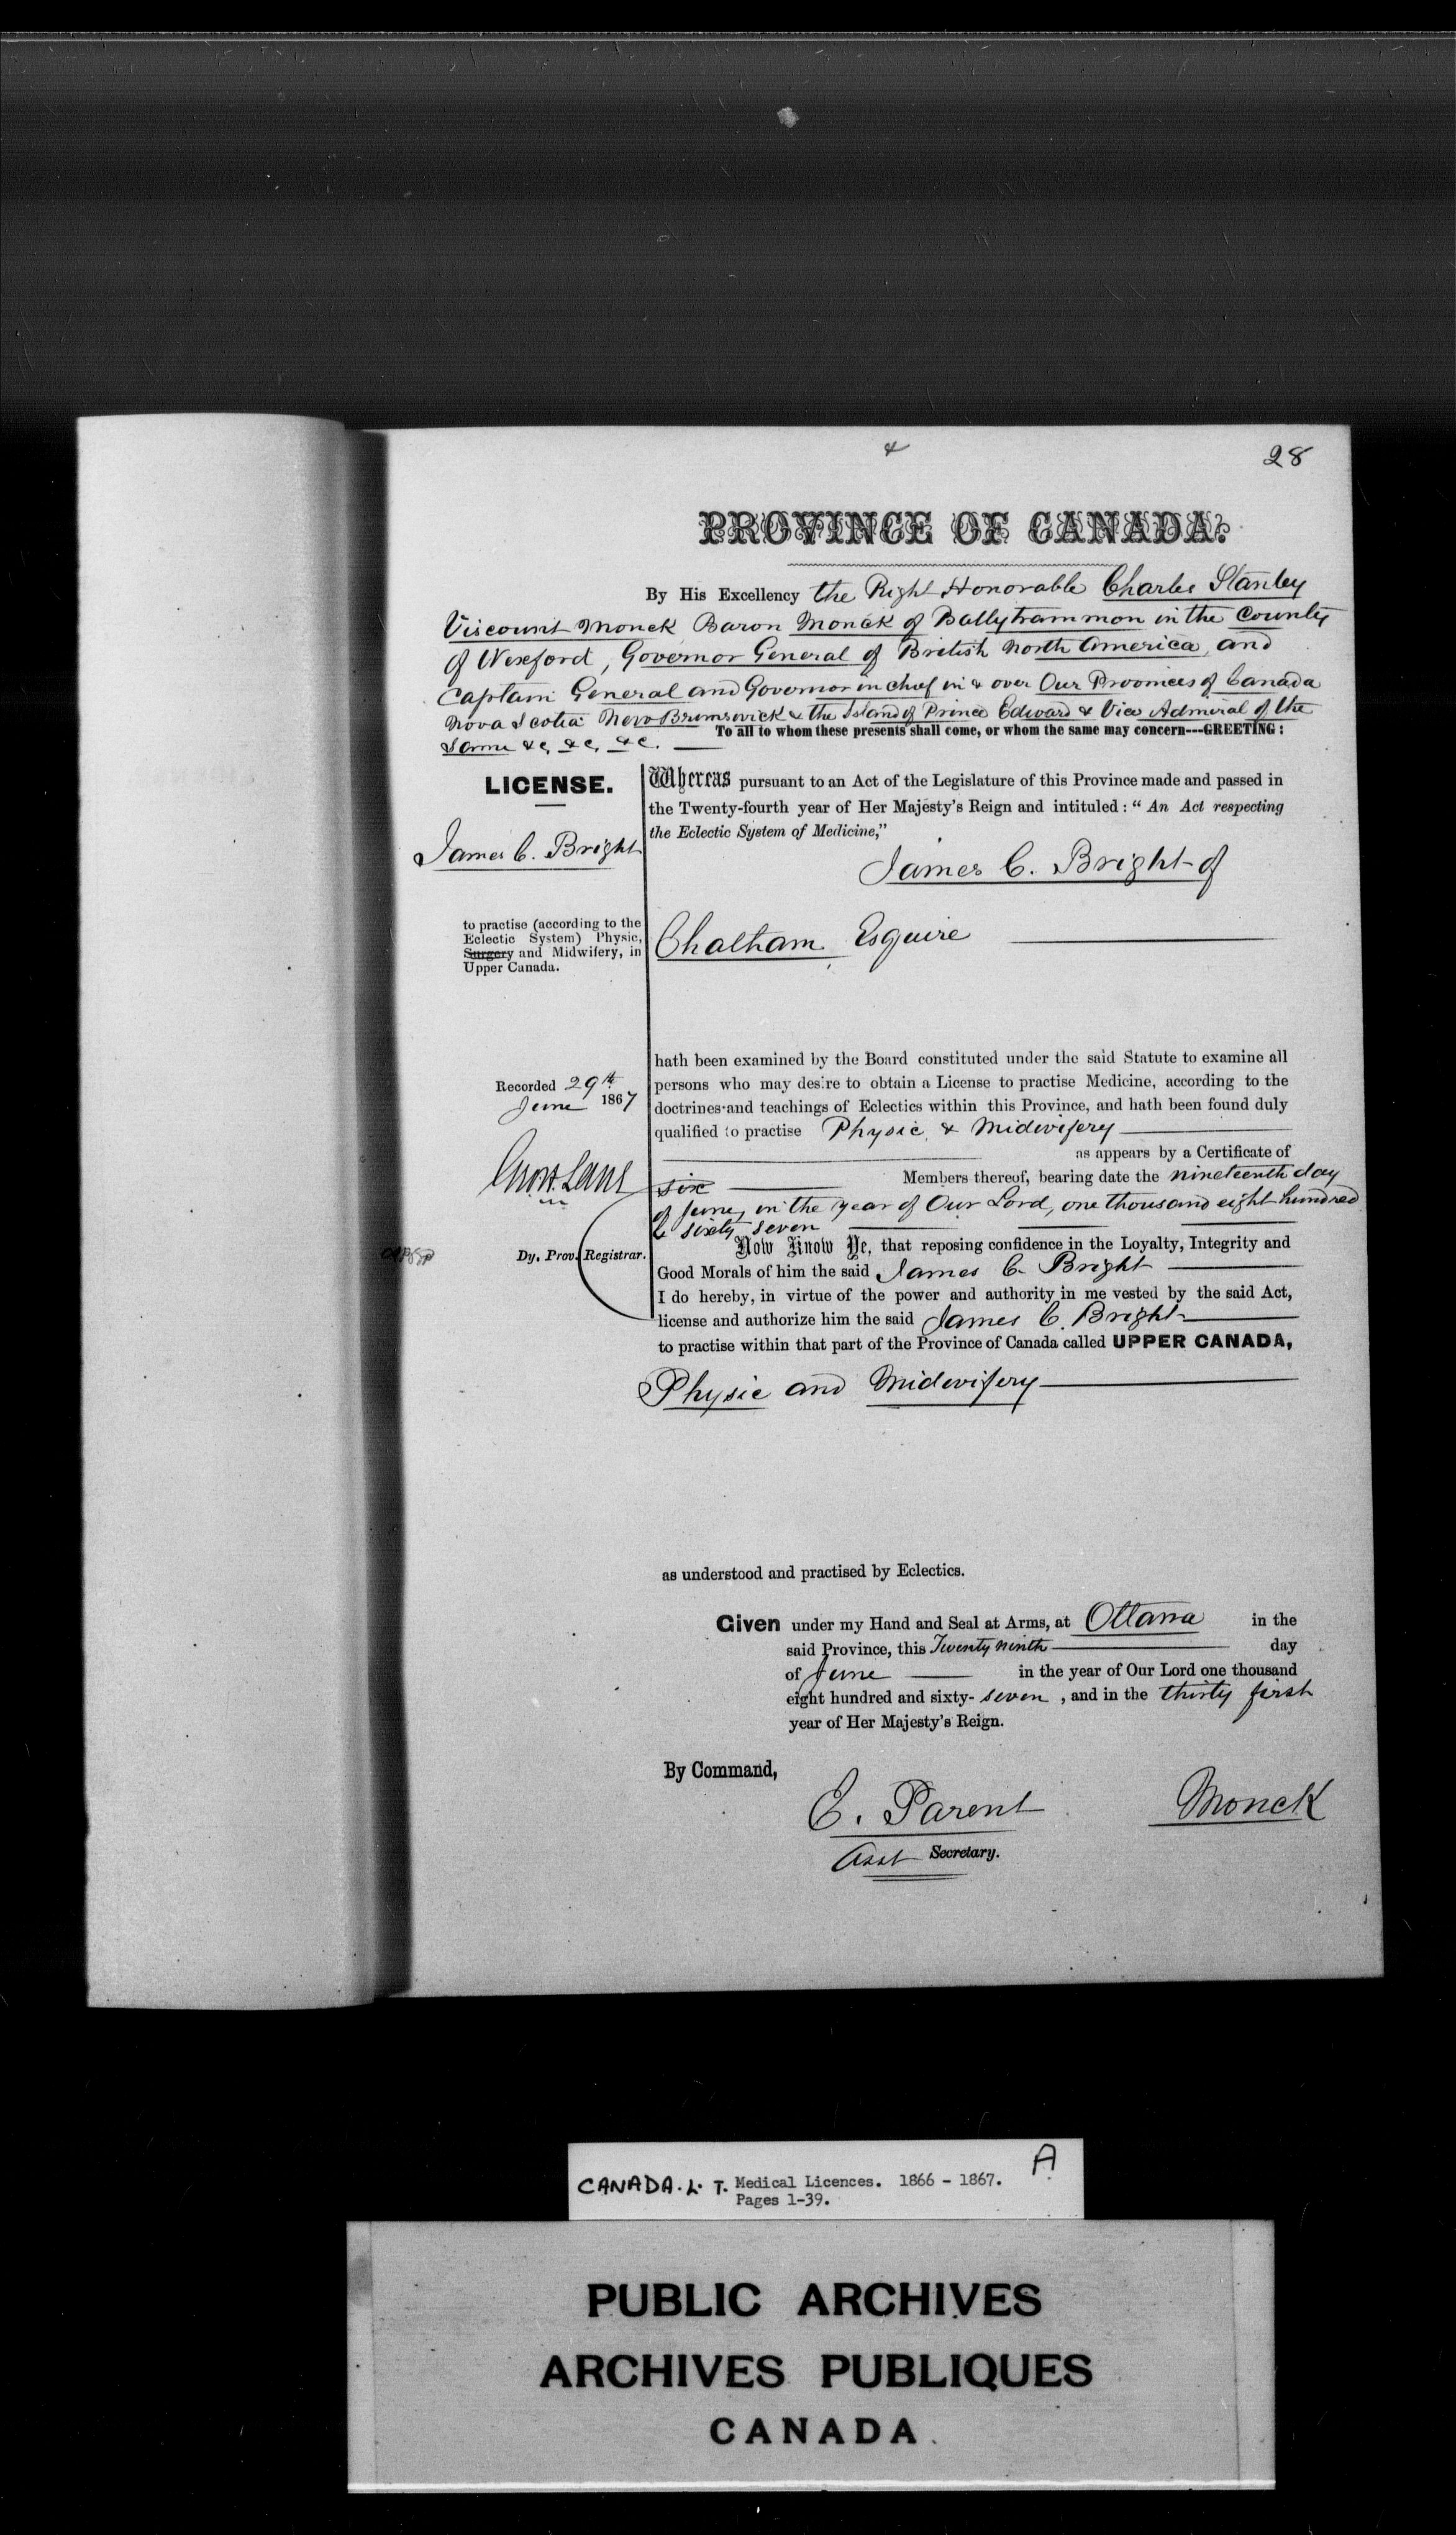 28
PROVINCE OF CANADA.
By His Excellency the Right Honorable Charles Stanley
Viscount Monck Baron Monck of Ballytrammon in the County
of Wexford, Governor General of British North America, and
Captain General and Governor in chief in & over Our Provinces of Canada
Nova Scotia New Brunswick & the Island of Prince Edward & Vice Admiral of the
Same &c, &c, &c.
To all to whom these presents shall come, or whom the same may concern---GREETING:
LICENSE.
James C. Bright
to practise (according to the
Eclectic System) Physic,
Surgery and Midwifery, in
Upper Canada.
Recorded 29th
June 1867
Dy. Prov. Registrar.
Whereas pursuant to an Act of the Legislature of this Province made and passed in
the Twenty-fourth year of Her Majesty's Reign and intituled: "An Act respecting
the Eclectic System of Medicine,"
James C. Bright of
Chatham Esquire
hath been examined by the Board constituted under the said Statute to examine all
persons who may desire to obtain a License to practise Medicine, according to the
doctrines and teachings of Eclectics within this Province, and hath been found duly
qualified to practise Physic & Midwifery
as appears by a Certificate of
six Members thereof, bearing date the nineteenth day
of June, in the year of Our Lord, one thousand eight hundred
& sixty seven
Now Know Ye, that reposing confidence in the Loyalty, Integrity and
Good Morals of him the said James C. Bright
I do hereby, in virtue of the power and authority in me vested by the said Act,
license and authorize him the said James C. Bright
to practise within that part of the Province of Canada called UPPER CANADA,
Physic and Midwifery
as understood and practised by Eclectics.
Given under my Hand and Seal at Arms, at Ottawa in the
said Province, this Twenty ninth day
of June in the year of Our Lord one thousand
eight hundred and sixty-seven, and in the thirty first
year of Her Majesty's Reign.
By Command,
E. Parent
Monck
Asst Secretary.
CANADA. L. T. Medical Licences. 1866 - 1867. A
Pages 1-39.
PUBLIC ARCHIVES
ARCHIVES PUBLIQUES
CANADA